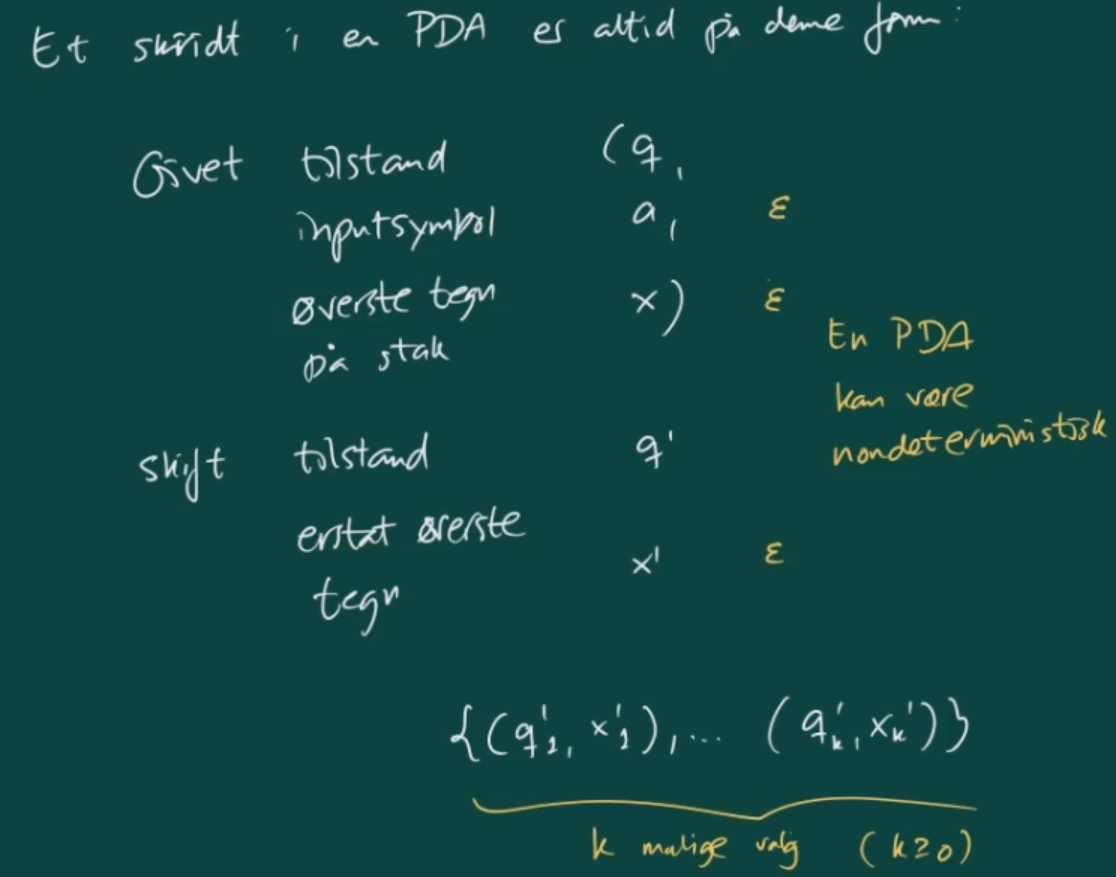 Et skridt i en PDA er altid på denne form:
Givet tilstand (q,
inputsymbol a, ε
øverste tegn x) ε
på stak
En PDA
kan være
nondeterministisk
skift tilstand q'
erstat øverste
tegn x' ε
{(q'1, x'1), ... (q'k, xk')}
k mulige valg (k≥0)